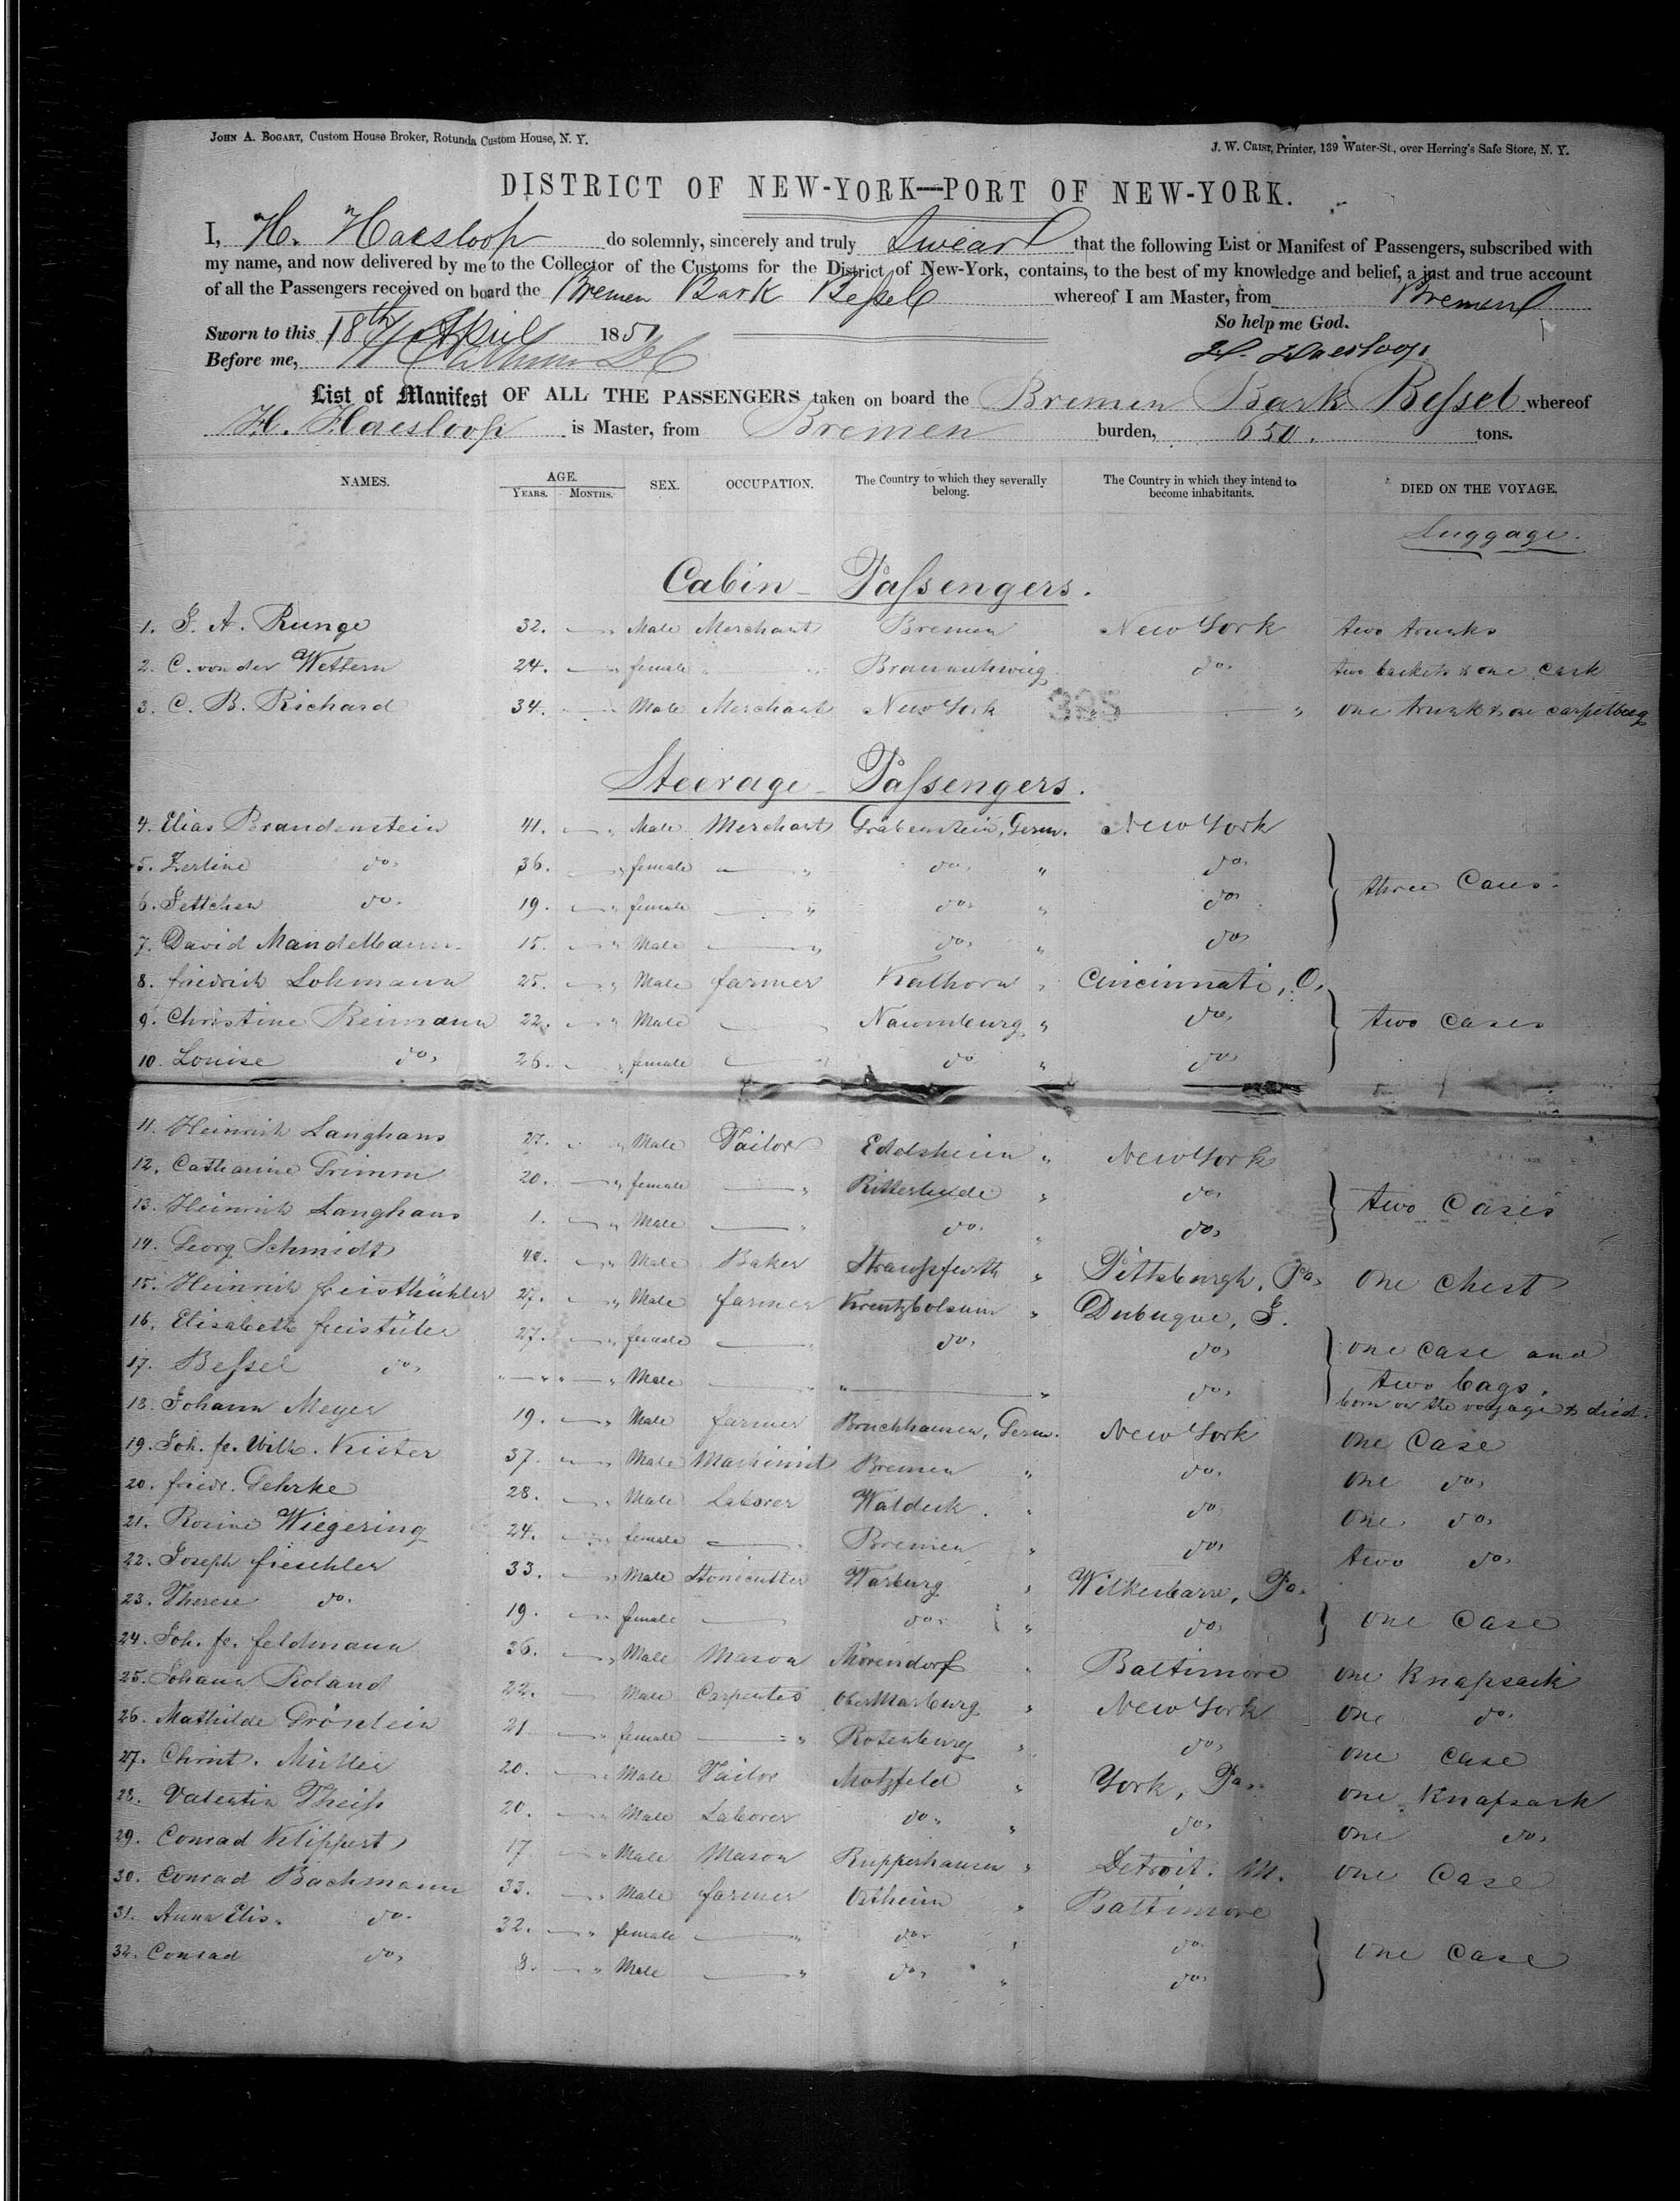 JOHN A. BOGART, Custom House Broker, Rotunda Custom House, N. Y.
J. W. CRIST, Printer, 139 Water-St., over Herring's Safe Store, N. Y.
DISTRICT OF NEW-YORK—PORT OF NEW-YORK.
I, H. Haesloop do solemnly, sincerely and truly Swear that the following List or Manifest of Passengers, subscribed with
my name, and now delivered by me to the Collector of the Customs for the District of New-York, contains, to the best of my knowledge and belief, a just and true account
of all the Passengers received on board the Bremen Bark Beſsel whereof I am Master, from Bremen
So help me God.
Sworn to this 18th April 1851
H. Haesloop
Before me,
List of Manifest OF ALL THE PASSENGERS taken on board the Bremen Bark Beſsel whereof
H. Haesloop is Master, from Bremen burden, 650. tons.
NAMES. AGE. YEARS. MONTHS. SEX. OCCUPATION. The Country to which they severally belong. The Country in which they intend to become inhabitants. DIED ON THE VOYAGE.
Luggage.
Cabin - Paſsengers.
1. J. A. Runge 32. — " Male Merchant Bremen New York two trunks
2. C. von der Wettern 24. — " female Braunschweig do. two baskets & one cask
3. C. B. Richard 34. — " Male Merchant New York — " one trunk & one carpetbag
395
Steerage - Paſsengers.
4. Elias Brandenstein 41. — " Male Merchant Grabenstein, Germ. New York
5. Zerline do. 36. — " female — " do. " do.
6. Jettchen do. 19. — " female — " do. " do. three Cases.
7. David Mandelbaum 15. — " Male — " do. " do.
8. friedrich Lohmann 25. — " Male farmer Kalhorn " Cincinnati, O.
9. Christine Reimann 22. — " Male — Naumburg " do. two Cases
10. Louise do. 26. — " female — " do. " do.
11. Heinrich Langhans 27. " Male Tailor Edelsheim " New York
12. Catharine Grimm 20. — " female — " Ritterhude " do. two Cases
13. Heinrich Langhans 1. — " Male — " do. " do.
14. Georg Schmidt 40. — " Male Baker Strauſsfurth " Pittsburgh, Pa. One Chest
15. Heinrich 27. — " Male farmer " Dubuque, J.
16. Elisabeth 27. — " female — do. do. one case and
17. Beſsel do. " — " " — " Male — " — " do. two bags.
born on the voyage & died.
18. Johann Meyer 19. — " Male farmer Bruchhausen, Germ. New York one Case
19. Joh. fr. Wilh. Küster 37. — " Male Machinist Bremen " do. one do.
20. friedr. Gehrke 28. — " Male Laborer Waldeck " do. one do.
21. Rosine Wiegering 24. — " female — Bremen " do. two do.
22. Joseph fieschler 33. — " Male Stonecutter Warburg " Wilkesbarre, Pa.
23. Therese do. 19. — " female — do. " do. one Case
24. Joh. fr. feldmann 36. — " Male Mason Mörendorf " Baltimore one Knapsack
25. Johann Roland 22. — Male Carpenter OberMarburg " New York one do.
26. Mathilde Grönlein 21 — " female — " Rotenburg " do. one case
27. Christ. Müller 20. — " Male Tailor Motzfeld " York, Pa. one Knapsack
28. Valentin Theiſs 20. — " Male Laborer do. " do. one do.
29. Conrad Klippert 17 — " Male Mason Rupperhausen " Detroit. M. one Case
30. Conrad Bachmann 33. — " Male farmer Ostheim " Baltimore
31. Anna Elis. do. 32. — " female — " do. " do. one Case
32. Conrad do. 8. — " Male — " do. " do.